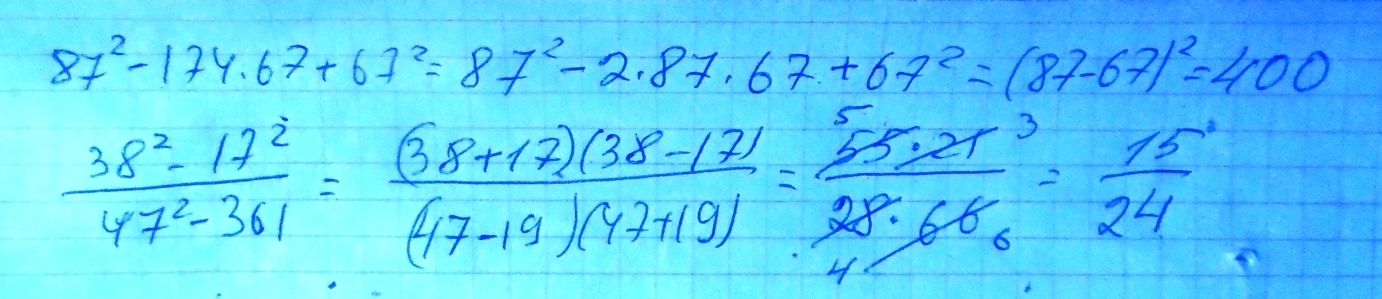 87² - 174·67 + 67² = 87² - 2·87·67 + 67² = (87-67)² = 400
(38² - 17²)/(47² - 361) = ((38+17)(38-17))/((47-19)(47+19)) = (55·21)/(28·66) = 15/24
5 3
4 6